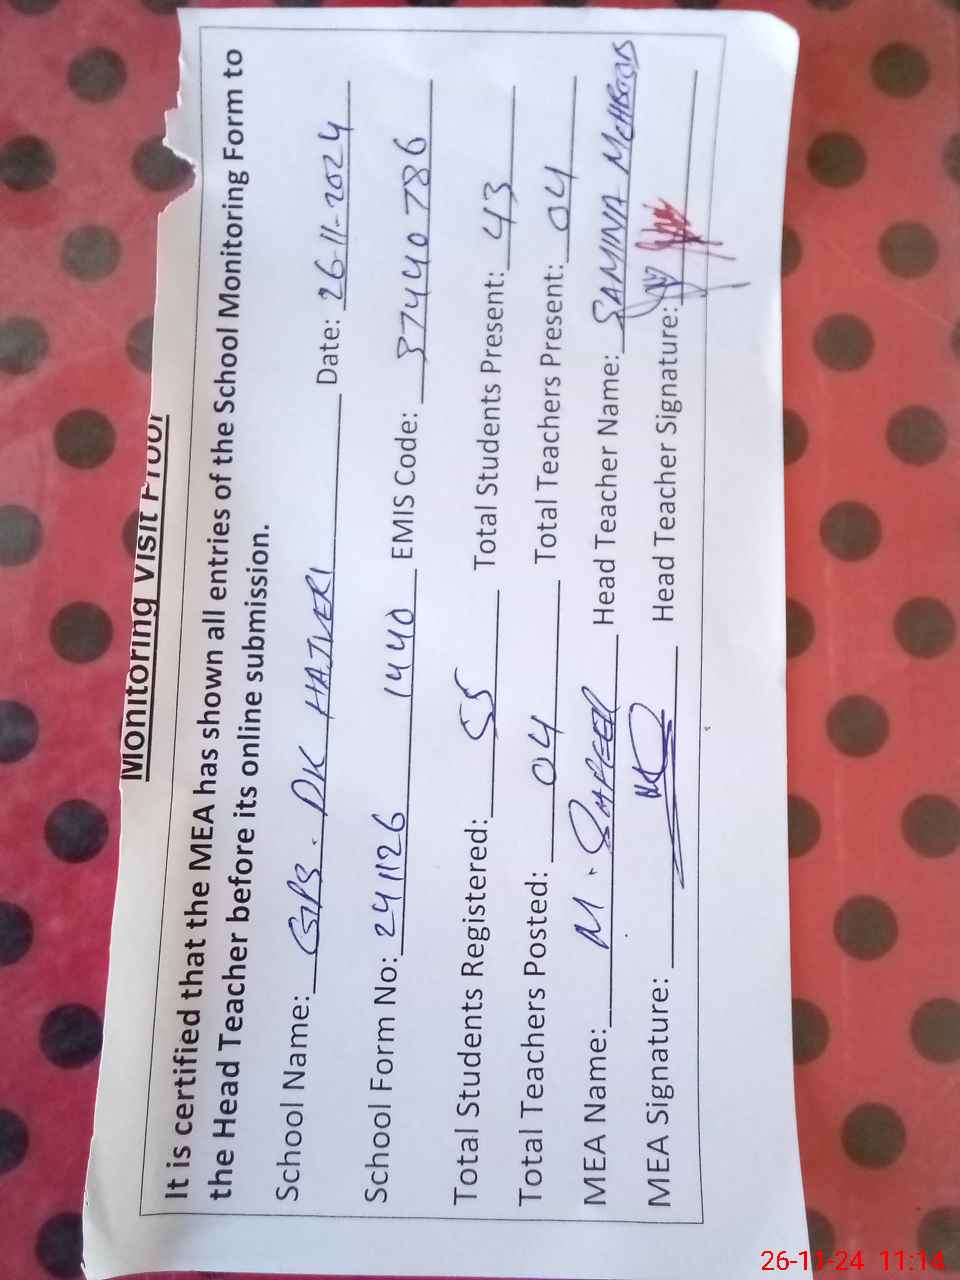 Monitoring Visit Proof
It is certified that the MEA has shown all entries of the School Monitoring Form to
the Head Teacher before its online submission.
School Name: GPS. DK HAJVERI Date: 26-11-2024
School Form No: 241126 1440 EMIS Code: 37440786
Total Students Registered: 55 Total Students Present: 43
Total Teachers Posted: 04 Total Teachers Present: 04
MEA Name: M. Head Teacher Name: SAMINA MEHBOOB
MEA Signature: Head Teacher Signature:
26-11-24 11:14